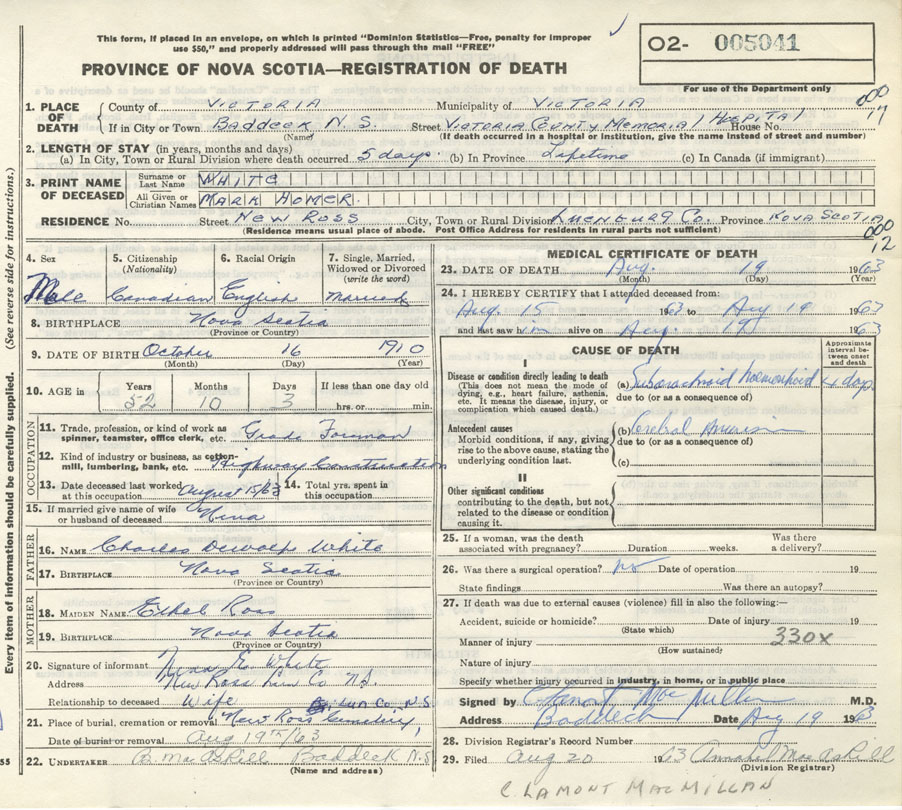 This form, if placed in an envelope, on which is printed "Dominion Statistics—Free, penalty for improper
use $50," and properly addressed will pass through the mail "FREE"
PROVINCE OF NOVA SCOTIA—REGISTRATION OF DEATH
O2- 005041
For use of the Department only
1. PLACE OF DEATH County of VICTORIA Municipality of VICTORIA 000
If in City or Town Baddeck N.S. Street Victoria County Memorial Hospital House No. 17
(Name) (If death occurred in a hospital or institution, give the name instead of street and number)
2. LENGTH OF STAY (in years, months and days)
(a) In City, Town or Rural Division where death occurred 5 days. (b) In Province Lifetime (c) In Canada (if immigrant)
3. PRINT NAME OF DECEASED Surname or Last Name WHITE
All Given or Christian Names MARK HOMER.
RESIDENCE No. Street NEW ROSS City, Town or Rural Division LUNENBURG Co. Province NOVA SCOTIA
(Residence means usual place of abode. Post Office Address for residents in rural parts not sufficient) 000
12
4. Sex 5. Citizenship (Nationality) 6. Racial Origin 7. Single, Married, Widowed or Divorced (write the word)
Male Canadian English Married
8. BIRTHPLACE Nova Scotia
(Province or Country)
9. DATE OF BIRTH October 16 1910
(Month) (Day) (Year)
10. AGE in Years Months Days If less than one day old
52 10 3 hrs. or min.
OCCUPATION
11. Trade, profession, or kind of work as spinner, teamster, office clerk, etc. Grade Foreman
12. Kind of industry or business, as cotton-mill, lumbering, bank, etc. Highway Construction
13. Date deceased last worked at this occupation August 15/63 14. Total yrs. spent in this occupation
15. If married give name of wife or husband of deceased Nina
FATHER
16. NAME Charles Dewolfe White
17. BIRTHPLACE Nova Scotia
(Province or Country)
MOTHER
18. MAIDEN NAME Ethel Ross
19. BIRTHPLACE Nova Scotia
(Province or Country)
20. Signature of informant Nina E. White
Address New Ross Lun Co. N.S.
Relationship to deceased Wife Lun Co. N.S
21. Place of burial, cremation or removal New Ross Cemetery
Date of burial or removal Aug 19th/63
22. UNDERTAKER B. MacAskill Baddeck N.S
(Name and address)
MEDICAL CERTIFICATE OF DEATH
23. DATE OF DEATH Aug. 19 1963
(Month) (Day) (Year)
24. I HEREBY CERTIFY that I attended deceased from:
Aug. 15 1963 to Aug 19 1963
and last saw him alive on Aug. 19 1963
CAUSE OF DEATH Approximate interval between onset and death
I
Disease or condition directly leading to death
(This does not mean the mode of dying, e.g., heart failure, asthenia, etc. It means the disease, injury, or complication which caused death.)
(a) Subarachnoid 4 days
due to (or as a consequence of)
Antecedent causes
Morbid conditions, if any, giving rise to the above cause, stating the underlying condition last.
(b) Cerebral
due to (or as a consequence of)
(c)
II
Other significant conditions
contributing to the death, but not related to the disease or condition causing it.
25. If a woman, was the death associated with pregnancy? Duration weeks. Was there a delivery?
26. Was there a surgical operation? no Date of operation 19
State findings Was there an autopsy?
27. If death was due to external causes (violence) fill in also the following:—
Accident, suicide or homicide? Date of injury 19
(State which)
Manner of injury 330x
(How sustained)
Nature of injury
Specify whether injury occurred in industry, in home, or in public place
Signed by C Lamont MacMillan M.D.
Address Baddeck Date Aug 19 1963
28. Division Registrar's Record Number
29. Filed Aug 20 1963 MacAskill
(Division Registrar)
C. LAMONT MACMILLAN
Every item of information should be carefully supplied. (See reverse side for instructions.)
55